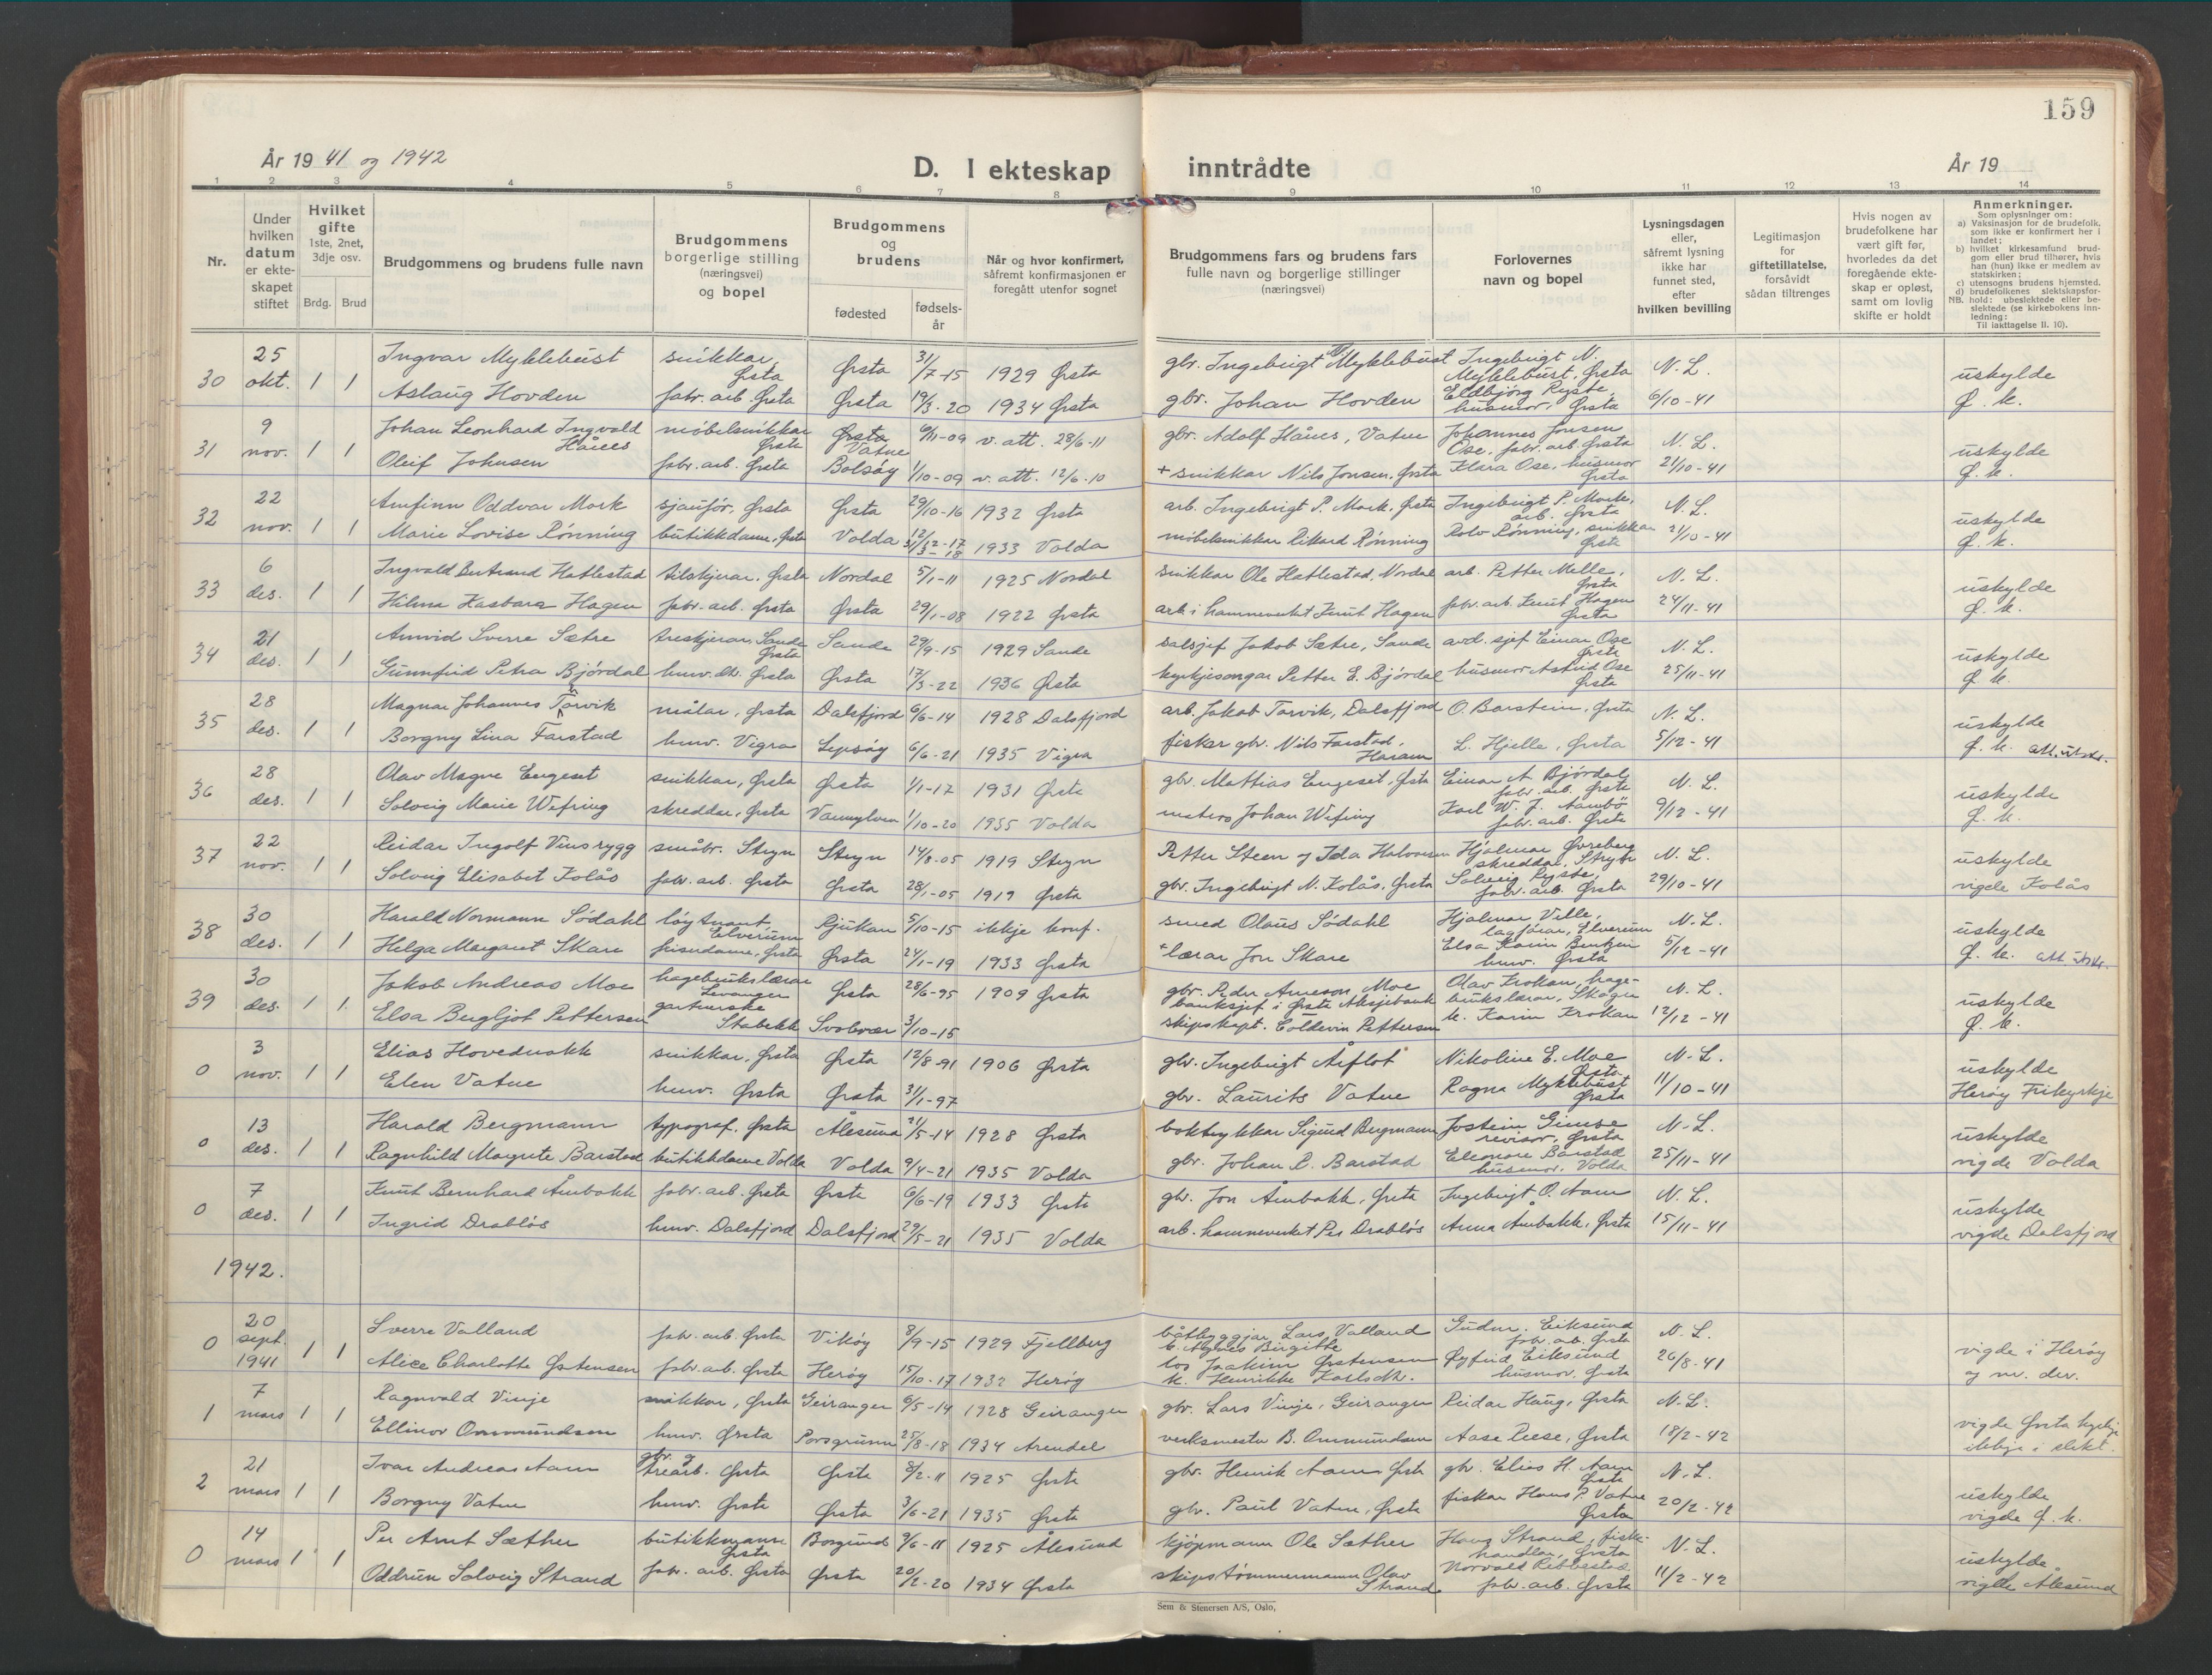 159
År 1941 og 1942
D. I ekteskap inntrådte
År 19
1 2 3 4 5 6 7 8 9 10 11 12 13 14
Nr.
Under hvilken datum er ekteskapet stiftet
Hvilket gifte 1ste, 2net, 3dje osv.
Brdg. Brud
Brudgommens og brudens fulle navn
Brudgommens borgerlige stilling (næringsvei) og bopel
Brudgommens og brudens
fødested
fødselsår
Når og hvor konfirmert, såfremt konfirmasjonen er foregått utenfor sognet
Brudgommens fars og brudens fars fulle navn og borgerlige stillinger (næringsvei)
Forlovernes navn og bopel
Lysningsdagen eller, såfremt lysning ikke har funnet sted, efter hvilken bevilling
Legitimasjon for giftetillatelse, forsåvidt sådan tiltrenges
Hvis nogen av brudefolkene har vært gift før, hvorledes da det foregående ekteskap er opløst, samt om lovlig skifte er holdt
Anmerkninger.
Som oplysninger om:
a) Vaksinasjon for de brudefolk, som ikke er konfirmert her i landet;
b) hvilket kirkesamfund brudgom eller brud tilhører, hvis han (hun) ikke er medlem av statskirken;
c) utensogns brudens hjemsted.
d) brudefolkenes slektskapsforhold: ubeslektede eller beslektede (se kirkebokens innledning:
NB. Til iakttagelse II. 10).
30 25 okt. 1 1 Ingvar Myklebust snikkar, Ørsta Ørsta 31/7-15 1929 Ørsta gbr. Ingebrigt N. Myklebust Ingebrigt N. Myklebust, Ørsta N. L. uskylde
Aslaug Hovden fabr. arb. Ørsta Ørsta 19/3-20 1934 Ørsta gbr. Johan Hovden Eldbjørg Ryste, husmor, Ørsta 6/10-41 Ø. k.
31 9 nov. 1 1 Johan Leonhard Ingvald Hånes møbelsnikkar Ørsta Ørsta Vatne 6/11-09 v. att. 28/6-11 gbr. Adolf Hånes, Vatne Johannes Jonsen Ose, fabr. arb. Ørsta N. L. uskylde
Oleif Johnsen fabr. arb. Ørsta Bolsøy 1/10-09 v. att. 12/6-10 + snikkar Nils Jonsen, Ørsta Klara Ose, husmor Ørsta 21/10-41 Ø. k.
32 22 nov. 1 1 Arnfinn Oddvar Mork sjauför, Ørsta Ørsta 29/10-16 1932 Ørsta arb. Ingebrigt P. Mork, Ørsta Ingebrigt P. Mork, arb. Ørsta N. L. uskylde
Marie Lovise Rønning butikkdame, Ørsta Volda 1933 Volda møbelsnikkar Rikard Rønning Rolv Rønning, snikkar Ørsta 21/10-41 Ø. k.
33 6 des. 1 1 Ingvald Bertrand Hatlestad tilskjerar, Ørsta Nordal 5/1-11 1925 Nordal snikkar Ole Hatlestad, Nordal arb. Petter Melle, Ørsta N. L. uskylde
Hilma Kasbara Hagen fabr. arb. Ørsta Ørsta 29/1-08 1922 Ørsta arb. i hamneverket Knut Hagen fabr. arb. Knut Hagen Ørsta 24/11-41 Ø. k.
34 21 des. 1 1 Arnvid Sverre Sætre treskjerar, Sande Ørsta Sande 29/9-15 1929 Sande salsjef Jakob Sætre, Sande avd. sjef Einar Ose Ørsta N. L. uskylde
Gunnfrid Petra Bjørdal husv. dtr. Ørsta Ørsta 17/3-22 1936 Ørsta kyrkjesongar Petter E. Bjørdal husmor Astrid Ose Ørsta 25/11-41 Ø. k.
35 28 des. 1 1 Magnar Johannes Torvik målar, Ørsta Dalsfjord 6/6-14 1928 Dalsfjord arb. Jakob Torvik, Dalsfjord O. Barstein, Ørsta N. L. uskylde
Borgny Lina Farstad husv. Vigra Lepsøy 6/6-21 1935 Vigra fiskar gbr. Nils Farstad, Haram L. Hjelle, Ørsta 5/12-41 Ø. k. att. utskr.
36 28 des. 1 1 Olav Magne Engeset snikkar, Ørsta Ørsta 1/1-17 1931 Ørsta gbr. Mattias Engeset, Ørsta Einar A. Bjørdal fabr. arb. Ørsta N. L. uskylde
Solveig Marie Wefring skreddar, Ørsta Vannylven 1/10-20 1935 Volda Johan Wefring Karl W. J. Aambø fabr. arb. Ørsta 9/12-41 Ø. k.
37 22 nov. 1 1 Reidar Ingolf Vinsrygg småbr. Stryn Stryn 14/8-05 1919 Stryn Petter Steen og Ida Halvorsen Hjalmar Øvreberg skreddar, Stryn N. L. uskylde
Solveig Elisabet Kolås fabr. arb. Ørsta Ørsta 28/1-05 1919 Ørsta gbr. Ingebrigt N. Kolås, Ørsta Solveig Ryste, fabr. arb. Ørsta 29/10-41 vigde Kolås
38 30 des. 1 1 Harald Normann Södahl løytnant, Elverum Rjukan 5/10-15 ikkje konf. smed Olaus Södahl Hjalmar Ville, lagførar, Elverum N. L. uskylde
Helga Margaret Skare frisørdame, Ørsta Ørsta 24/1-19 1933 Ørsta + lærar Jon Skare Elsa Karin Bentzen husv. Ørsta 5/12-41 Ø. k. att. utskr.
39 30 des. 1 1 Jakob Andreas Moe hagebrukslærar Levanger Ørsta 28/6-95 1909 Ørsta gbr. Peder Arneson Moe banksjef i Ørsta Aksjebank Olav Krokan, hagebrukslærar, Skogn N. L. uskylde
Elsa Bergljot Pettersen gartnerske Stabekk Svolvær 3/10-15 skipskapt. Coldevin Pettersen k. Karin Krokan 12/12-41 Ø. k.
0 3 nov. 1 1 Elias Hovednakk snikkar, Ørsta Ørsta 12/8-91 1906 Ørsta gbr. Ingebrigt Åsflot Nikoline E. Moe Ørsta N. L. uskylde
Elen Vatne husv. Ørsta Ørsta 31/1-97 gbr. Laurits Vatne Ragna Myklebust Ørsta 11/10-41 Herøy Frikyrkje
0 13 des. 1 1 Harald Bergmann typograf, Ørsta Ålesund 21/5-14 1928 Ørsta boktrykkar Sigurd Bergmann Jostein Gimse revisor, Ørsta N. L. uskylde
Ragnhild Margrete Barstad butikkdame Volda Volda 9/4-21 1935 Volda gbr. Johan R. Barstad Eleonore Barstad husmor, Volda 25/11-41 vigde Volda
0 7 des. 1 1 Knut Bernhard Åmbakk fabr. arb. Ørsta Ørsta 6/6-19 1933 Ørsta gbr. Jon Åmbakk, Ørsta Ingebrigt O. Aam N. L. uskylde
Ingrid Drabløs husv. Dalsfjord Dalsfjord 29/5-21 1935 Volda arb. hamneverket Per Drabløs Anna Åmbakk, Ørsta 15/11-41 vigde Dalsfjord
1942.
0 20 sept. 1941 1 1 Sverre Valland fabr. arb. Ørsta Vikøy 8/9-15 1929 Fjellberg båtbyggjar Lars Valland k. Agnes Birgitte Gudm. Eiksund fabr. arb. Ørsta N. L. vigde i Herøy
Alice Charlotte Østensen fabr. arb. Ørsta Herøy 15/10-17 1932 Herøy los Joakim Østensen k. Henrikke Karlsdtr. Øyfrid Eiksund husmor, Ørsta 26/8-41 og nr. der.
1 7 mars 1 1 Ragnvald Vinje snikkar, Ørsta Geiranger 6/5-14 1928 Geiranger gbr. Lars Vinje, Geiranger Reidar Haug, Ørsta N. L. vigde Ørsta kyrkje
Ellinor Ommundsen husv. Ørsta Porsgrunn 25/8-18 1934 Arendal verksmester B. Ommundsen Aase Reese, Ørsta 18/2-42 ikkje i slekt.
2 21 mars 1 1 Ivar Andreas Aam gbr. og trearb. Ørsta Ørsta 8/2-11 1925 Ørsta gbr. Henrik Aam Ørsta gbr. Elias H. Aam Ørsta N. L. uskylde
Borgny Vatne husv. Ørsta Ørsta 3/6-21 1935 Ørsta gbr. Paul Vatne, Ørsta fiskar Hans P. Vatne Ørsta 20/2-42 vigde Ø. k.
0 14 mars 1 1 Per Arnt Sæther butikkmann Ørsta Borgund 9/6-11 1925 Ålesund kjøpmann Ole Sæther Hans Strand, fiskehandlar, Ørsta N. L. uskylde
Oddrun Solveig Strand fabr. arb. Ørsta Ørsta 20/2-20 1934 Ørsta skipstømmermann Olav Strand Norvald Ribbestad fabr. arb. Ørsta 11/2-42 vigde Ålesund
Sem & Stenersen A/S, Oslo.